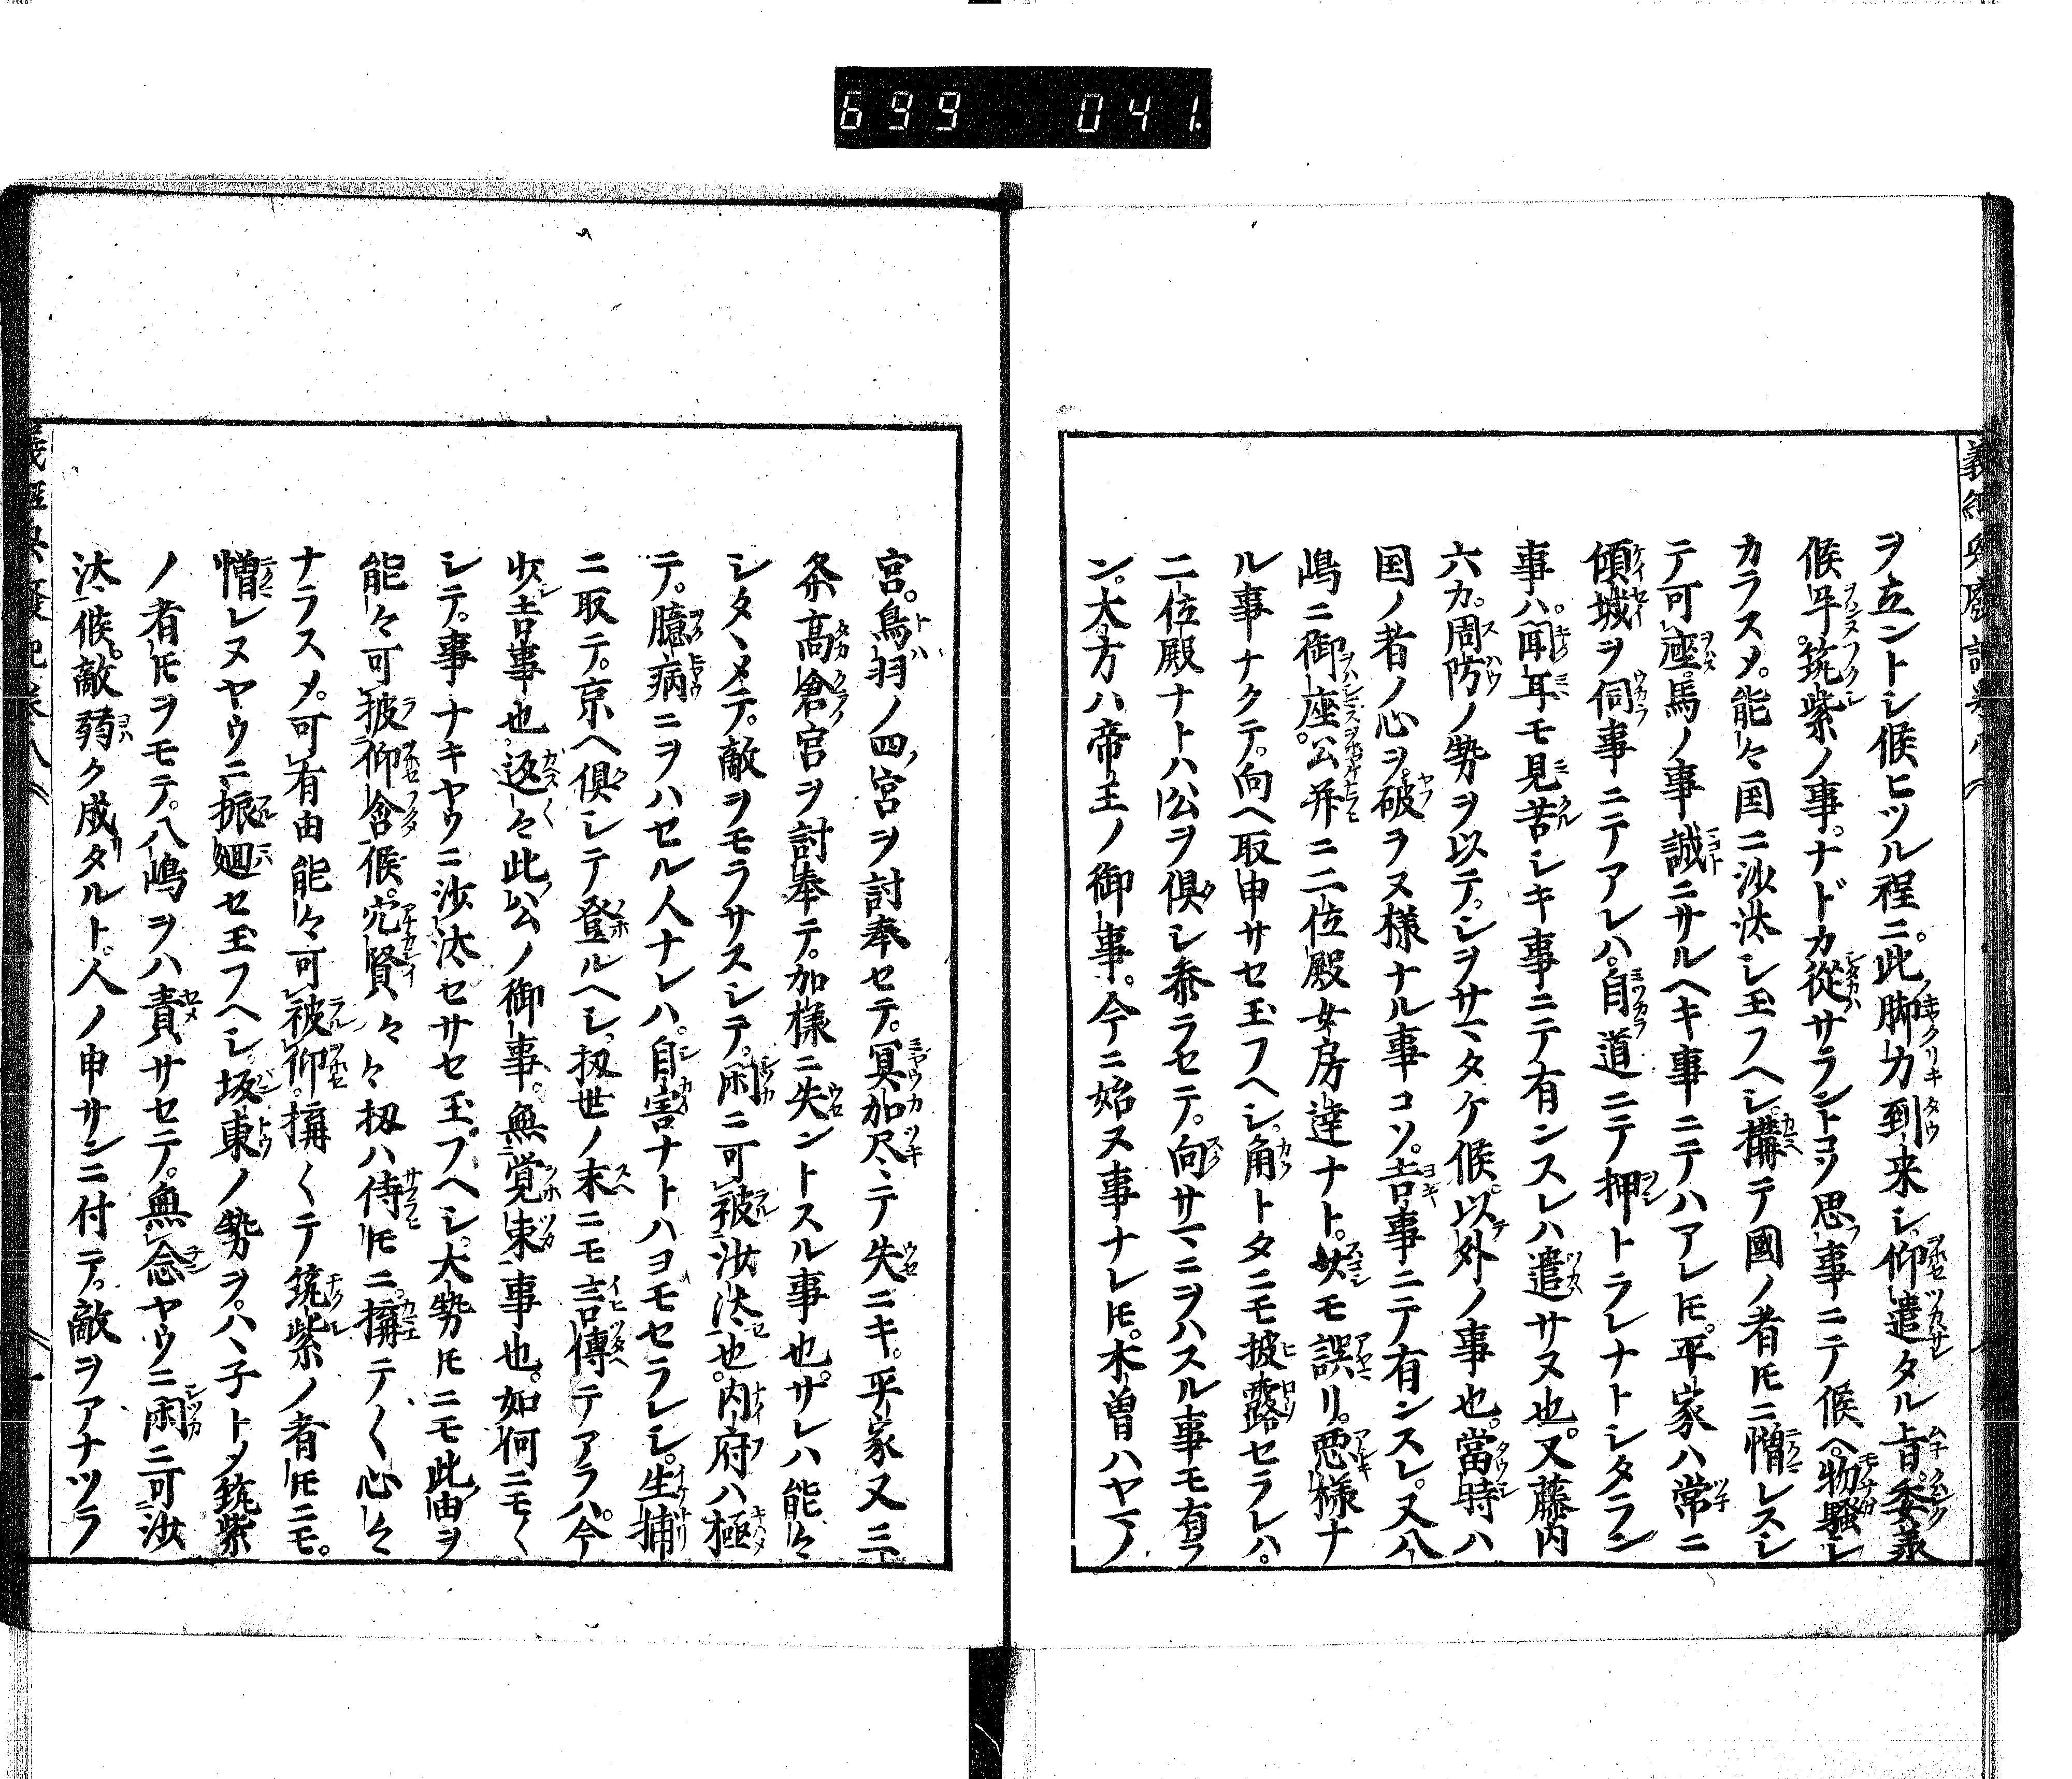 699 041.
ヲ立ントシ候ヒツル程ニ。此脚力到来シ。仰遣タル旨。委承
候畢。筑紫ノ事。ナドカ從サラントコソ思事ニテ候ヘ。物騒シ
カラスメ。能々国ニ沙汰シ玉フヘシ。構テ國ノ者𪜈ニ憎レスシ
テ可座。馬ノ事誠ニサルヘキ事ニテハアレ𪜈。平家ハ常ニ
傾城ヲ伺事ニテアレハ。自道ニテ押トラレナトシタラン
事ハ。聞耳モ見苦シキ事ニテ有ンスレハ遣サヌ也。又藤内
六カ。周防ノ勢ヲ以テ。シヲサマタケ候以外ノ事也。當時ハ
国ノ者ノ心ヲ。破ラヌ様ナル事コソ。吉事ニテ有ンスレ。又八
嶋ニ御座。公并ニ二位殿女房達ナト。少モ誤リ。悪様ナ
ル事ナクテ。向ヘ取申サセ玉フヘシ。角トタニモ披露セラレハ。
二位殿ナトハ公ヲ倶シ参ラセテ。向サマニヲハスル事モ有ラ
ン。大方ハ帝王ノ御事。今ニ始ヌ事ナレ𪜈。木曽ハヤマノ
宮。鳥羽ノ四宮ヲ討奉セテ。冥加尽テ失ニキ。平家又三
条高倉宮ヲ討奉テ。加様ニ失ントスル事也。サレハ能々
シタヽメテ。敵ヲモラサスシテ。閑ニ可被沙汰也。内府ハ極
テ。臆病ニヲハセル人ナレハ。自害ナトハヨモセラレシ。生捕
ニ取テ。京ヘ倶シテ登ルヘシ。扨世ノ末ニモ言傳テアラハ。今
少吉事也。返々此公ノ御事。無覚束事也。如何ニモ〱
シテ。事ナキヤウニ沙汰セサセ玉フヘシ。大勢𪜈ニモ此由ヲ
能々可被仰含候。穴賢々々扨ハ侍𪜈ニ構テ〱心々
ナラスメ。可有由能々可被仰。構〱テ筑紫ノ者𪜈ニモ。
憎レヌヤウニ振廻セ玉フヘシ。坂東ノ勢ヲ。ハヽ子トメ筑紫
ノ者𪜈ヲモテ。八嶋ヲハ責サセテ。無念ヤウニ閑ニ可沙
汰候。敵弱ク成タルト。人ノ申サンニ付テ。敵ヲアナツラ